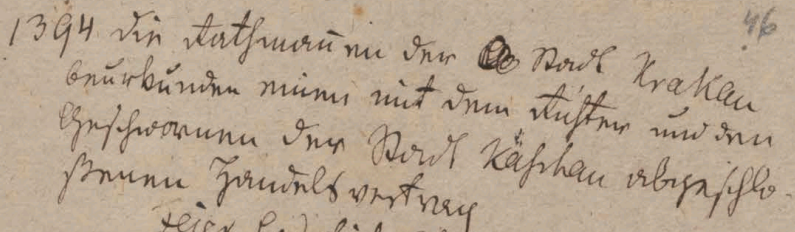 46
1394 die Rathmannen der Stadt Krakau
beurkunden einen mit dem Richter und den
Geschwornen der Stadt Käschau abgeschlo-
ßenen Handelsvertrag